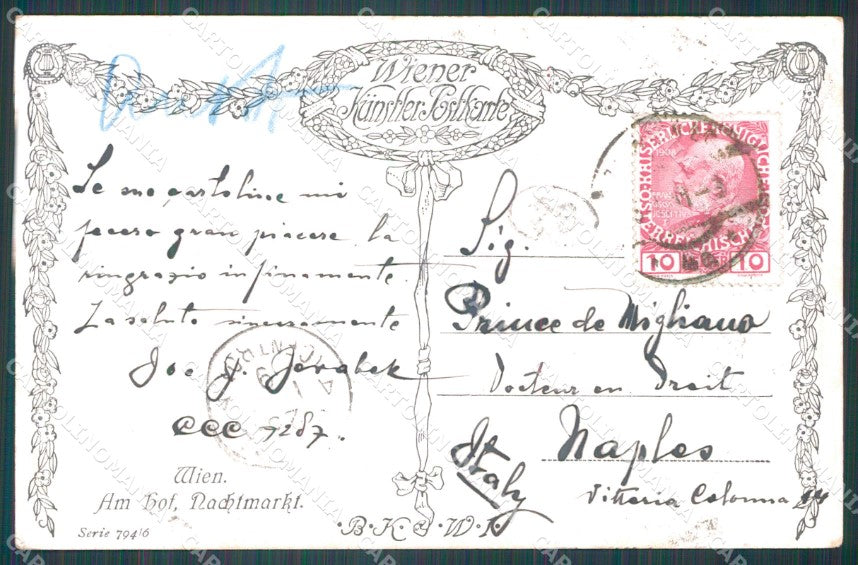 Wiener
Künstler-Postkarte
Le sue cartoline mi
fecero gran piacere, la
ringrazio infinamente
La saluto sinceramente
Joe J. Jerabek
CCC 7287.
Wien.
Am Hof, Nachtmarkt.
Serie 794/6
·B·K·W·I·
KAISERLICHE KÖNIGLICHE
ÖSTERREICHISCHE
10 10
Sig.
Prince de Migliano
Docteur en Droit
Naples
Italy
Vittoria Colonna 14
CARTOLINOMANIA